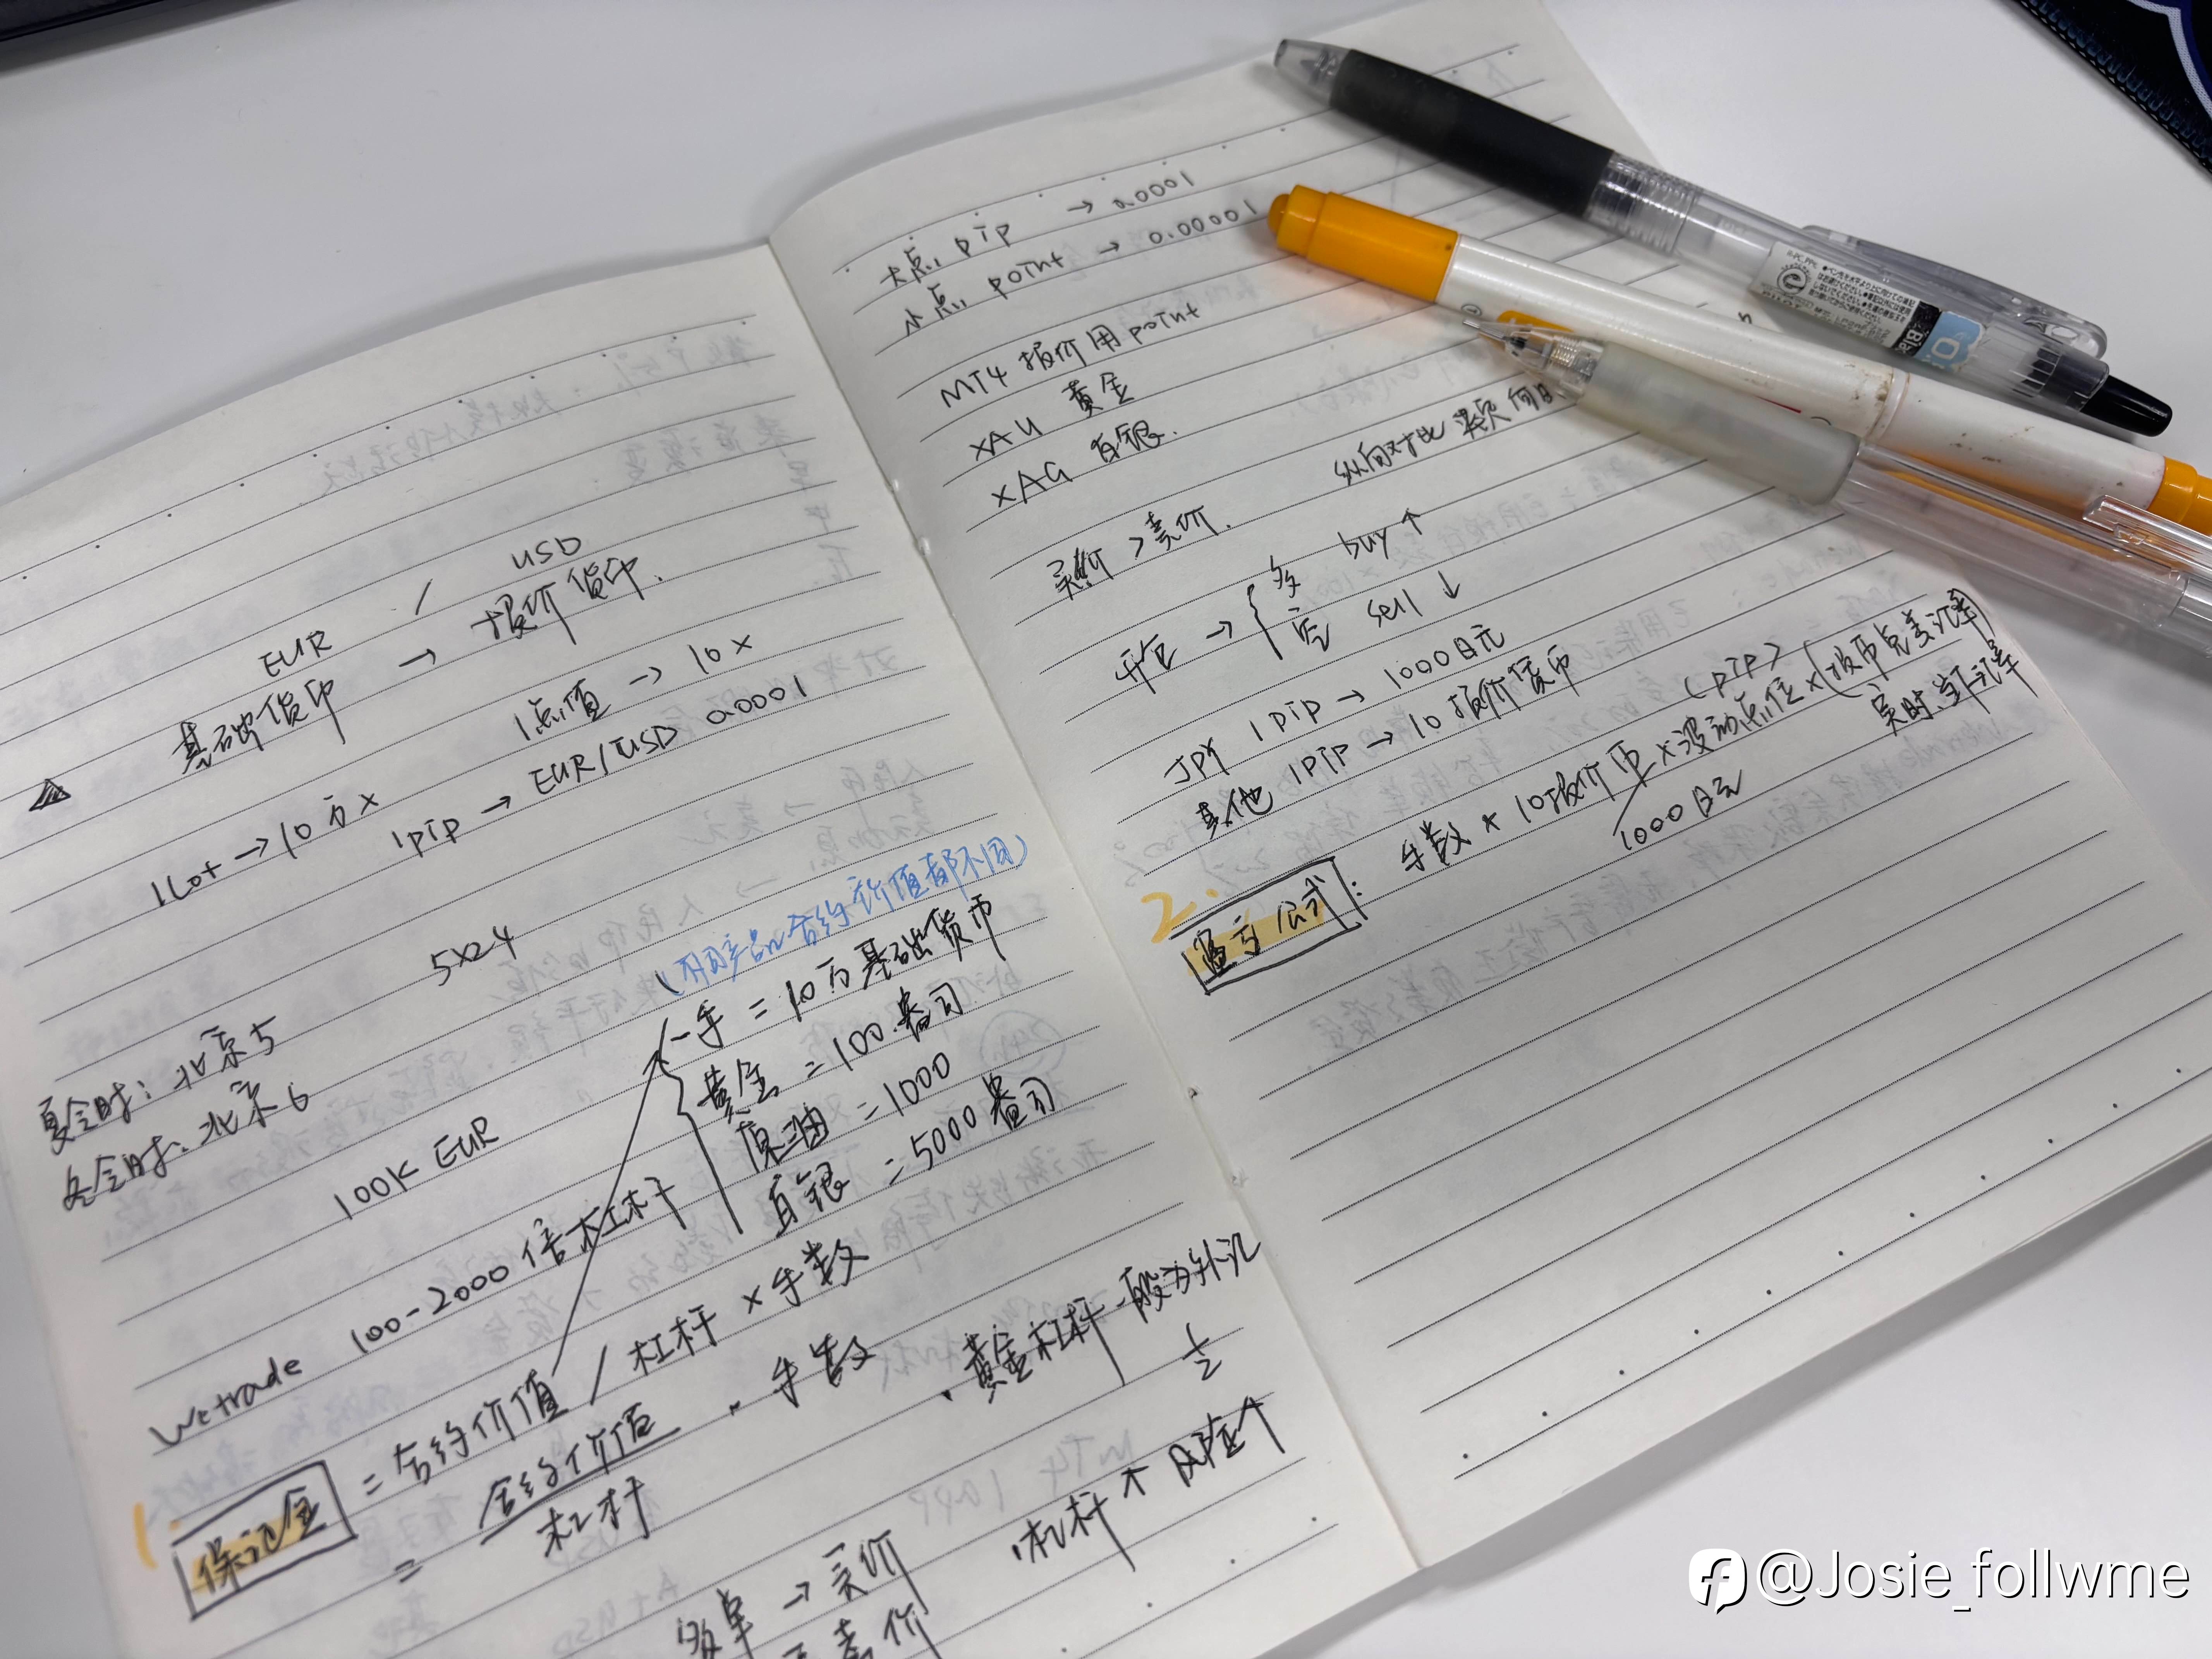 EUR / USD
基础货币 → 报价货币.
1Lot → 10万× 1点值 → 10×
1pip → EUR/USD 0.0001
5×24
夏令时: 北京5
冬令时: 北京6
(不同产品合约价值都不同)
100K EUR
一手 = 10万基础货币
黄金 = 100盎司
原油 = 1000
白银 = 5000盎司
Wetrade 100-2000倍杠杆
1.
保证金 = 合约价值 / 杠杆 × 手数
= 合约价值 / 杠杆 · 手数
·黄金杠杆一般为外汇 1/2
·杠杆↑ 风险↑
多单 → 买价
卖价
大点 pip → 0.0001
小点 point → 0.00001
MT4 报价用point
XAU 黄金
XAG 白银.
纵向对比
买价 > 卖价.
开仓 → { 多 buy ↑
空 sell ↓
JPY 1pip → 1000日元
其他 1pip → 10报价货币
2.
盈亏公式: 手数 × 10报价币 / 1000日元 × 波动点位 (pip) × (报币兑美汇率)
实时.当下汇率
@Josie_follwme